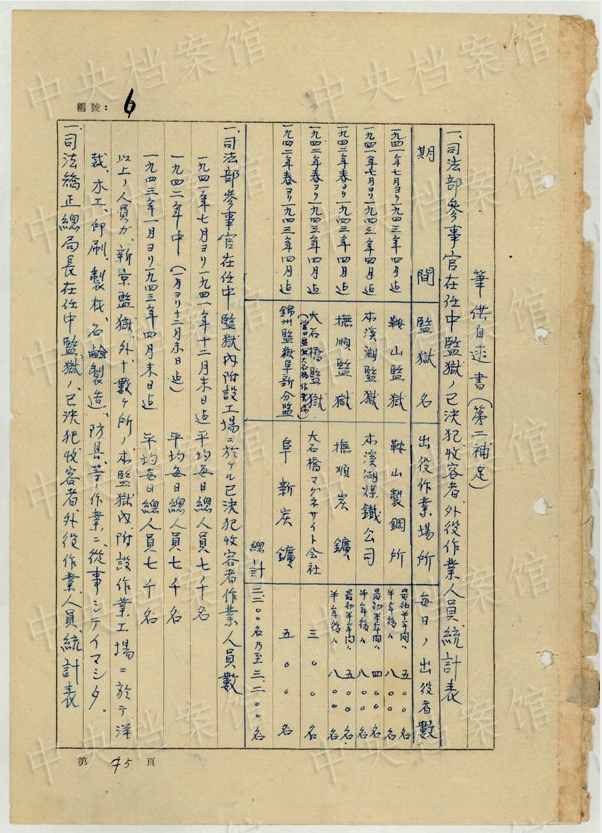 編號：6
筆供自述書（第二補足）
一、司法部參事官在任中監獄ノ已決犯收容者、外役作業人員統計表
期間 監獄名 出役作業場所 每日ノ出役者數
一九四一年七月ヨリ一九四三年四月迠 鞍山監獄 鞍山製鋼所 最初半年间ハ 五〇〇名 半年後ハ 八〇〇名
一九四一年七月ヨリ一九四三年四月迠 本溪湖監獄 本溪湖煤鐵公司 最初半年间ハ 四〇〇名 半年後ハ 八〇〇名
一九四二年春ヨリ一九四三年四月迠 撫順監獄 撫順炭鑛 最初半年间ハ 五〇〇名 半年後ハ 八〇〇名
一九四二年春ヨリ一九四三年四月迠 大石橋監獄 大石橋マグネサイト会社 三〇〇名
一九四二年春ヨリ一九四三年四月迠 錦州監獄阜新分監 阜新炭鑛 五〇〇名
總計 二二〇〇名乃至三、二〇〇名
一、司法部參事官在任中監獄內附設工場ニ於ケル已決犯收容者作業人員數
一九四一年七月ヨリ一九四一年十二月末日迠 平均每日總人員七千名
一九四二年中（一月ヨリ十二月末日迠） 平均每日總人員七千名
一九四三年一月ヨリ一九四三年四月末日迠 平均每日總人員七千名
以上ノ人員ガ、新京監獄、外十數ケ所ノ本監獄內附設作業工場ニ於テ洋
裁、木工、印刷、製材、石鹼製造、防具等ノ作業ニ從事シテイマシタ。
一、司法矯正總局長在任中監獄ノ已決犯收容者、外役作業人員統計表
第 45 頁
中央档案馆